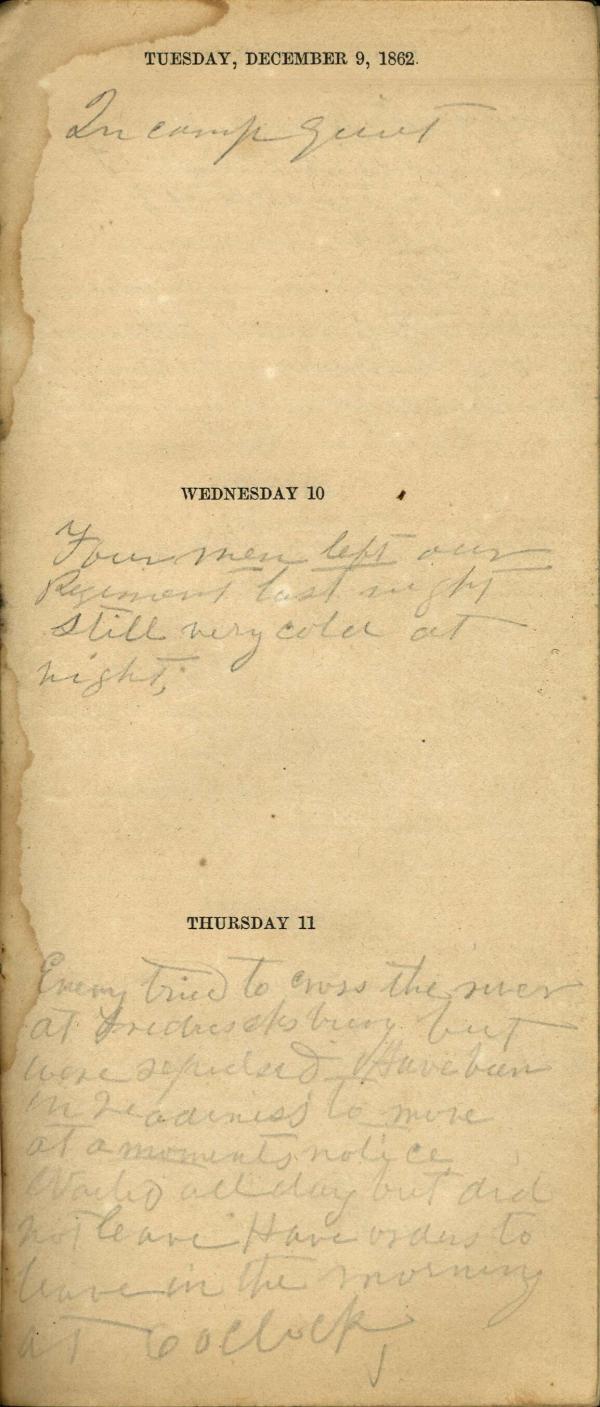 TUESDAY, DECEMBER 9, 1862.
In camp quiet
WEDNESDAY 10
Four men left our
Regiment last night
still very cold at
night,
THURSDAY 11
Enemy tried to cross the river
at Fredricksburg but
were repulsed Have been
in readiness to move
at a moments notice
Waited all day but did
not leave Have orders to
leave in the morning
at 6 oclock,